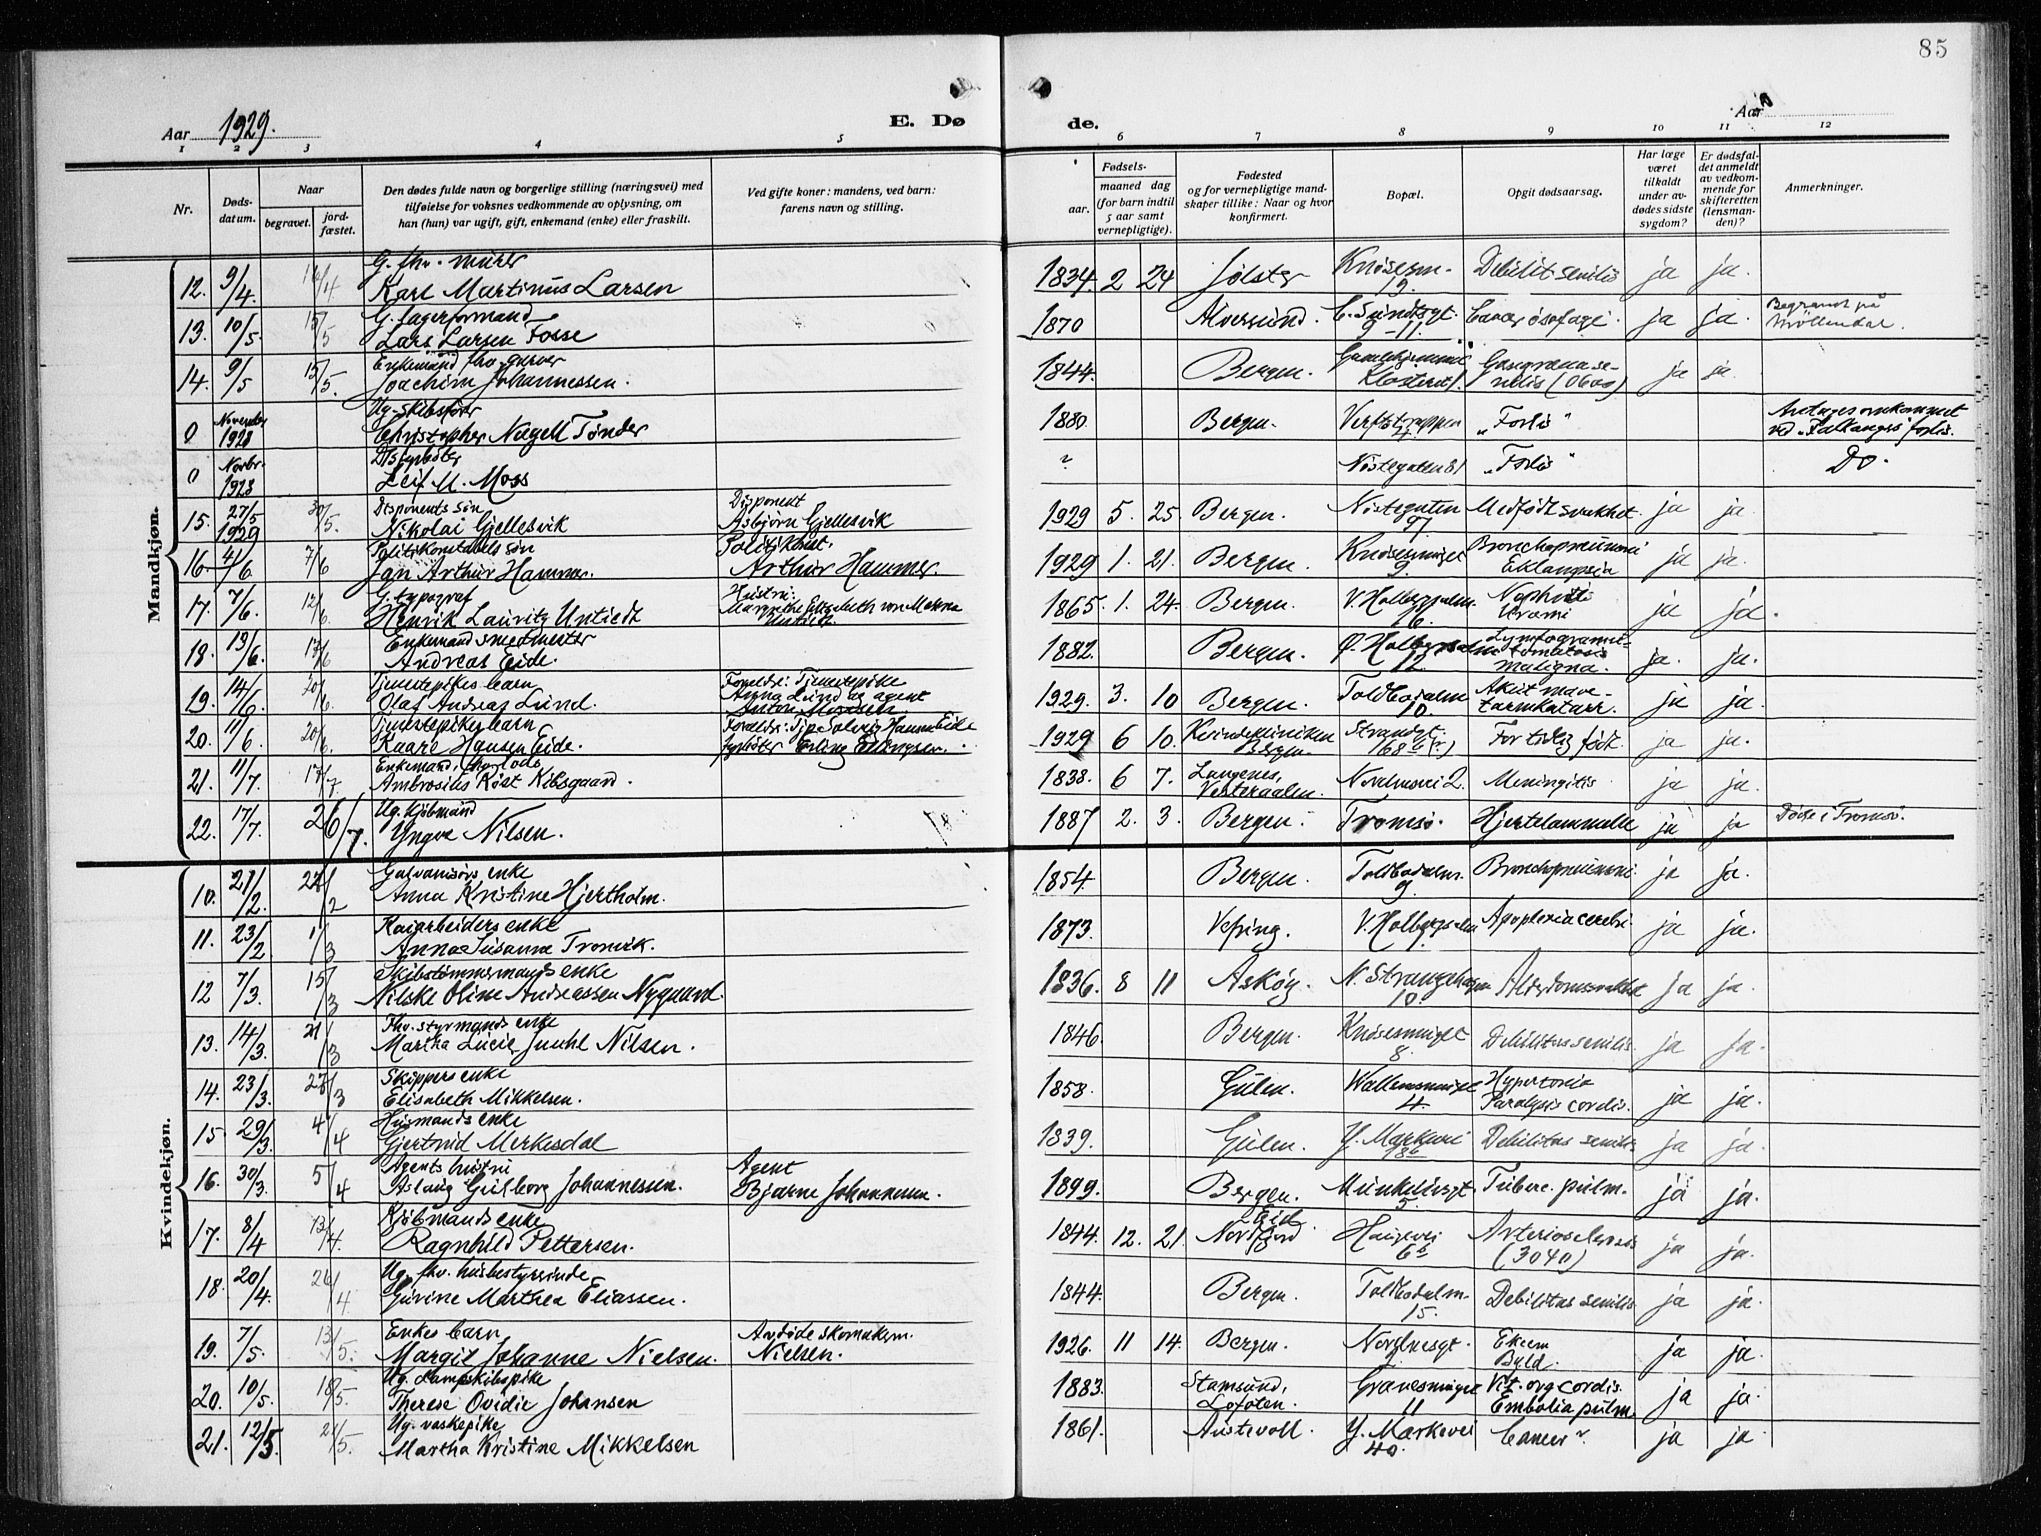 85
Aar 1929.
E. Dø
de.
Aar
1 2 3 4 5 6 7 8 9 10 11 12
Nr.
Døds-
datum.
Naar
begravet.
jord-
fæstet.
Den dødes fulde navn og borgerlige stilling (næringsvei) med
tilføielse for voksnes vedkommende av oplysning, om
han (hun) var ugift, gift, enkemand (enke) eller fraskilt.
Ved gifte koner: mandens, ved barn:
farens navn og stilling.
Fødsels-
aar.
maaned dag
(for barn indtil
5 aar samt
vernepligtige).
Fødested
og for vernepligtige mand-
skaper tillike: Naar og hvor
konfirmert.
Bopæl.
Opgit dødsaarsag.
Har læge
været
tilkaldt
under av-
dødes sidste
sygdom?
Er dødsfal-
det anmeldt
av vedkom-
mende for
skifteretten
(lensman-
den)?
Anmerkninger.
Mandkjøn.
G. fhv. murer
12. 9/4. Karl Martinus Larsen 1834 2 24 Jølster Knøsesm. 19. Debilit senilis ja ja.
G. lagerformand
13. 10/5. 15/5 Lars Larsen Fosse 1870 Alversund. C. Sundtsgt. 9-11. Cancer øsofagi. ja ja. Begravet på Møllendal.
Enkemand fhv. garver
14. 9/5 15/5. Joachim Johannessen. 1844. Bergen. Gamlehjemmet ja ja.
Ug. skibsfører
0 November 1928 Christopher Nagell Tønder 1880 Bergen. "Forlis" Antages omkommet ved "Falkangers" forlis.
0 Novbr. 1928 Leif M. Moss ? Nøstegaten 81 "Forlis" Do.
Disponents søn Disponent
15. 27/5 1929 30/5. Nikolai Gjellesvik Asbjørn Gjellesvik 1929 5. 25. Bergen. Nøstegaten 97 Medfødt svakhet. ja ja.
Politikonstabels søn Politikonst.
16. 4/6. 7/6 Jan Arthur Hammer. Arthur Hammer. 1929 1. 21. Bergen. Knøsesmuget 9. Bronchopneumoni Eklampsia ja ja.
G. typograf Hustru:
17. 7/6. 12/6. Henrik Lauritz Untiedt Margrethe Elisabeth von Untiedt 1865. 1. 24. Bergen. V. Holbergsalm. 16. Nephritis Uræmi ja ja.
Enkemand smedmester
18. 13/6. 17/6 Andreas Eide. 1882. Bergen. Ø. Holbergsalm 12. Lymfogranulomatosis maligna. ja. ja.
Tjenestepikes barn Foreldre: Tjenestepike
19. 14/6. 20/6. Olaf Andreas Lund. Anna Lund og agent Anton 1929. 3. 10 Bergen. Toldbodalm 10. Akut mave-tarmkatarr. ja ja.
Tjenestepikes barn
20. 11/6. 20/6. Kaare Hansen Eide. Foreldre: Tjp. Solveig Hansen Eide fyrbøter Erling Ellingsen. 1929 6 10. Kvindeklinikken Bergen. Strandgt. For tidlig født ja ja.
Enkemand,
21. 11/7. 17/7. Ambrosius Røst Kibsgaard. 1838. 6 7. Langenes, Vesteraalen. Nordnesvei 2. Meningitis ja ja.
Ug. kjøbmand
22. 17/7. 26/7. Yngve Nilsen. 1887 2. 3. Bergen. Tromsø. Hjertelammelse ja ja Døde i Tromsø.
Kvindekjøn.
Galvanisørs enke
10. 21/2. 27/2 Anna Kristine Hjertholm. 1854. Bergen. Toldbodalm. 9. Bronchopneumoni ja ja.
Kaiarbeiders enke
11. 23/2 1/3 Anna Susanna Tronvik. 1873. Vefsing. V. Holbergsalm Apoplexia cerebri. ja ja.
Skibstømmermands enke
12 7/3. 15/3 Nilske Oline Andreassen Nygaard. 1836. 8 11 Askøy. N. Strangehagen 10. Alderdomssvakhet ja ja.
Fhv. styrmands enke
13. 14/3. 21/3 Martha Lucie Juuhl Nilsen. 1846. Bergen. Knøsesmuget 8. Debilitas senilis. ja ja.
Skippers enke
14. 23/3. 27/3 Elisabeth Mikkelsen. 1858. Gulen. Wallemsmuget 4. Hypertonia Paralysis cordis. ja ja.
Husmands enke
15. 29/3. 4/4 Gjertrud Merkesdal 1839. Gulen. Y. Markevei 18b Debilitas senilis ja ja.
Agents hustru Agent
16. 30/3. 5/4 Aslaug Gulborg Johannessen. Bjarne Johannessen. 1899. Bergen. Munkelivsgt. 5. Tuberc. pulm. ja ja.
Kjøbmands enke
17. 8/4 13/4. Ragnhild Pettersen. 1844. 12. 21. Eid Nordfjord Haugevei 6b Arteriosclerosis (3040) ja ja.
Ug. fhv. husbestyrerinde
18. 20/4. 26/4 Gurine Marthea Eliassen. 1844. Bergen. Toldbodalm. 15. Debilitas senilis ja ja.
Enkes barn Avdøde skomakerm.
19. 7/5. 13/5. Margit Johanne Nielsen. Nielsen. 1926. 11 14. Bergen. Nordnesgt. Ekcem Byld. ja ja.
Ug. Dampskibspike
20. 10/5. 18/5. Therese Ovidie Johansen 1883. Stamsund, Lofoten. Gravesmuget 11 Vit. org cordis. Embolia pulm. ja ja.
Ug. vaskepike
21. 12/5. 21/5. Martha Kristine Mikkelsen 1861. Austevoll. Y. Markevei 40. Cancer ? ja ja